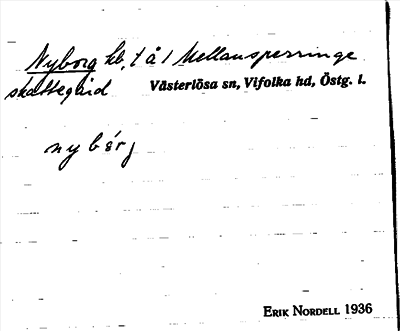 Nyborg hl, t å 1 Mellansperringe
skattegård Västerlösa sn, Vifolka hd, Östg. l.
nybórj
ERIK NORDELL 1936